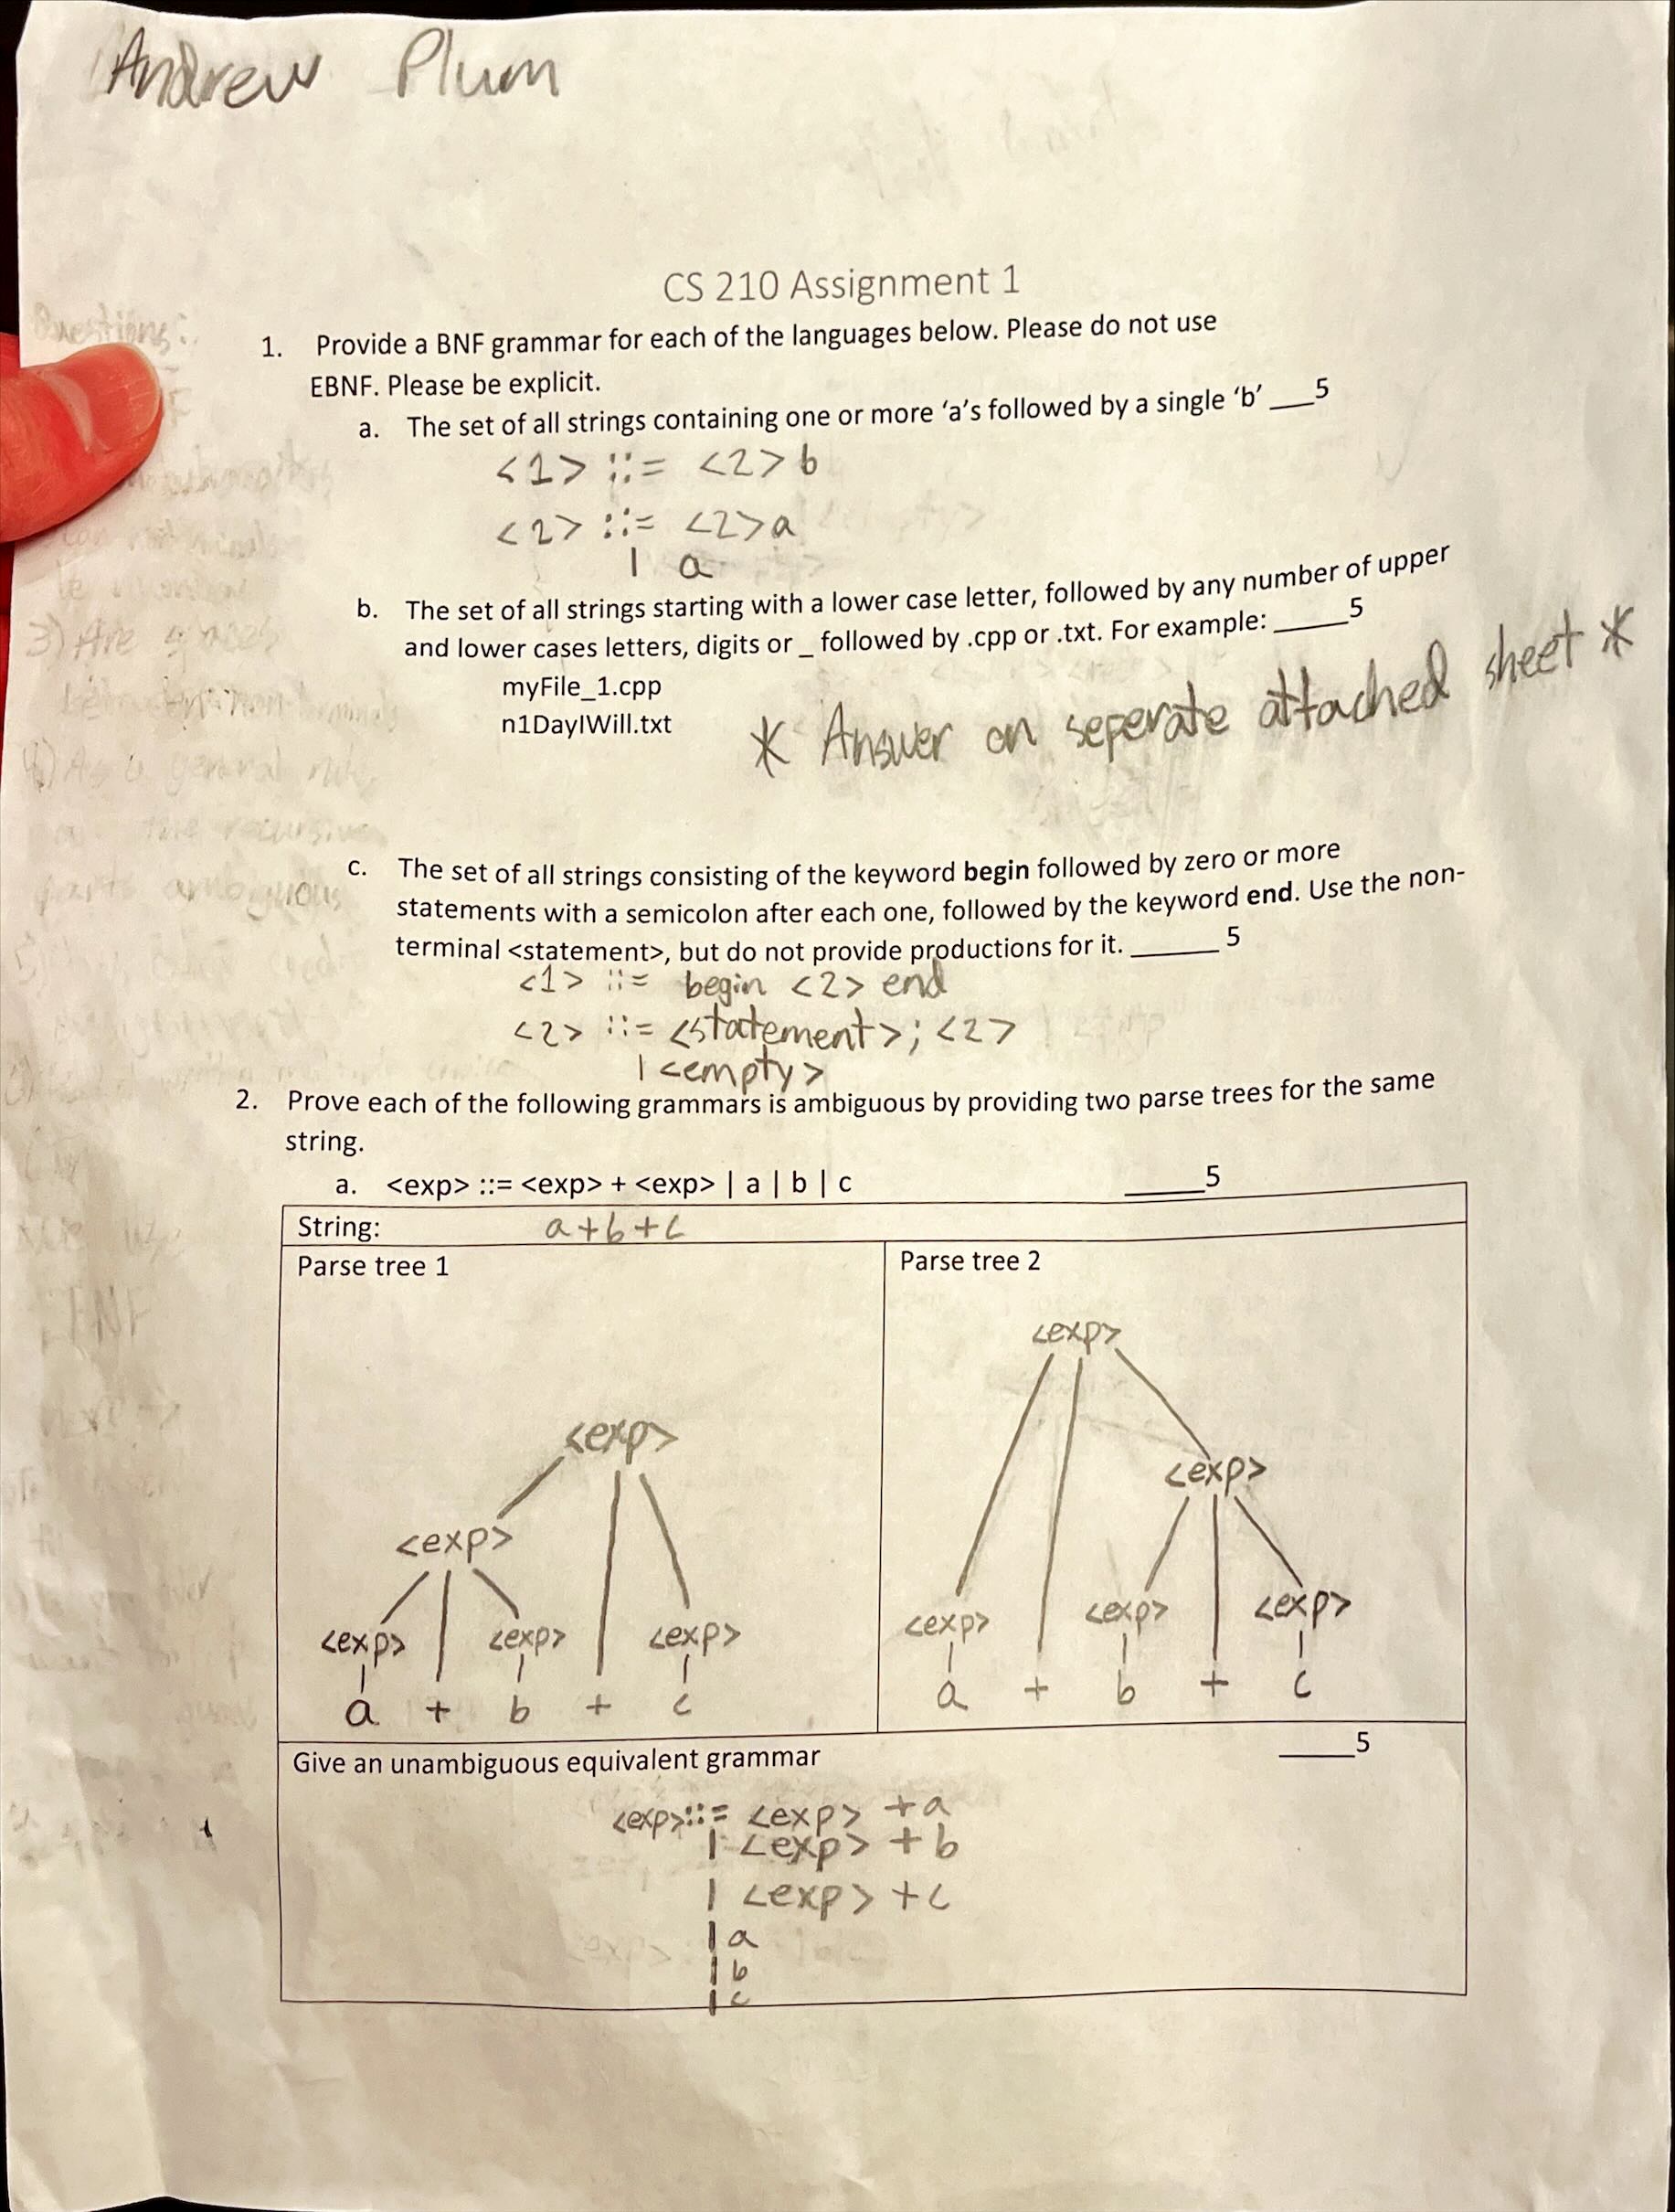 Andrew Plum
CS 210 Assignment 1
1. Provide a BNF grammar for each of the languages below. Please do not use
EBNF. Please be explicit.
a. The set of all strings containing one or more ‘a’s followed by a single ‘b’ ___5
<1> ::= <2>b
<2> ::= <2>a
| a
b. The set of all strings starting with a lower case letter, followed by any number of upper
and lower cases letters, digits or _ followed by .cpp or .txt. For example: _____5
myFile_1.cpp
n1DayIWill.txt
* Answer on seperate attached sheet *
c. The set of all strings consisting of the keyword begin followed by zero or more
statements with a semicolon after each one, followed by the keyword end. Use the non-
terminal <statement>, but do not provide productions for it. ______5
<1> ::= begin <2> end
<2> ::= <statement>; <2>
| <empty>
2. Prove each of the following grammars is ambiguous by providing two parse trees for the same
string.
a. <exp> ::= <exp> + <exp> | a | b | c _____5
String: a+b+c
Parse tree 1
<exp>
<exp>
<exp> <exp> <exp>
a + b + c
Parse tree 2
<exp>
<exp>
<exp> <exp> <exp>
a + b + c
Give an unambiguous equivalent grammar _____5
<exp>::= <exp> +a
| <exp> +b
| <exp> +c
| a
| b
| c